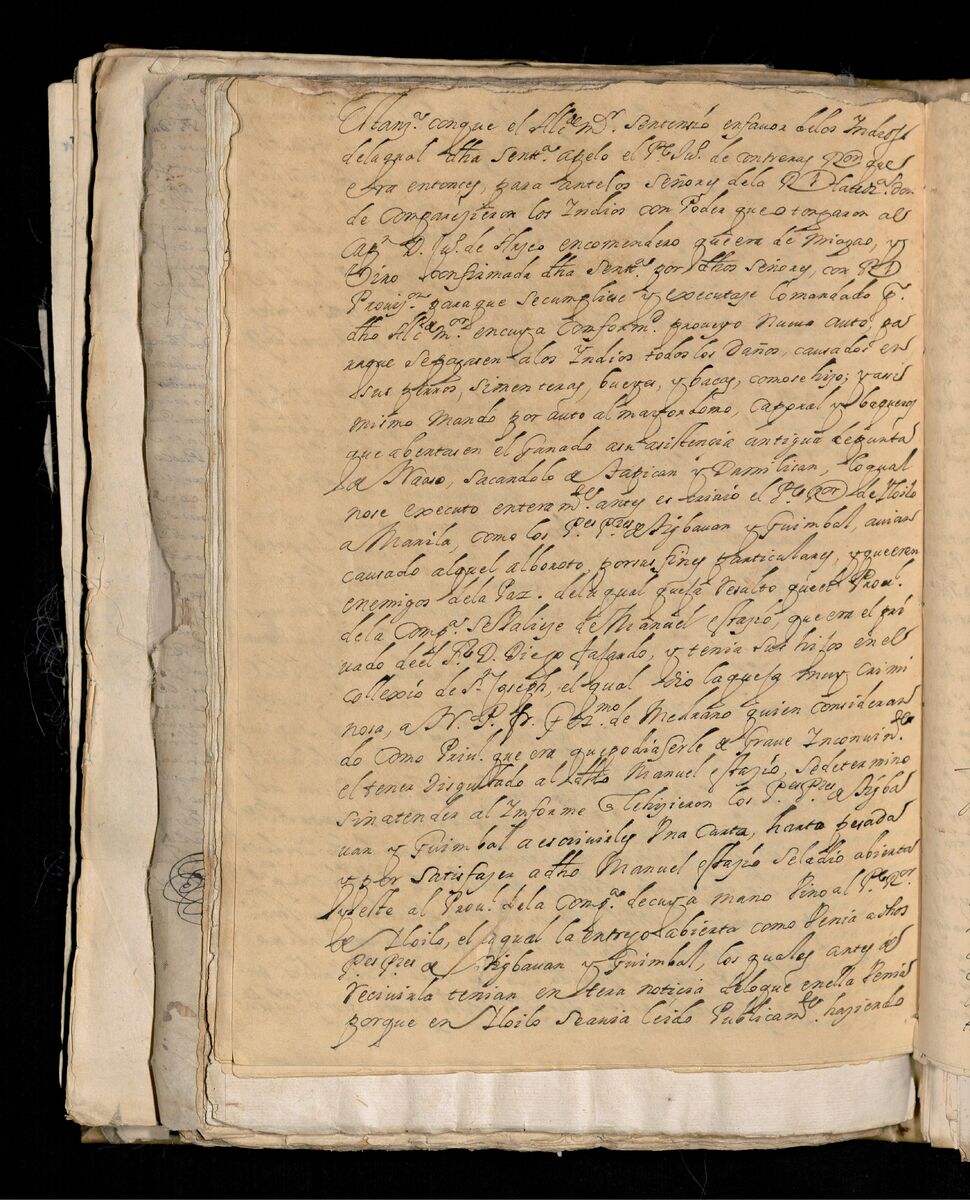 con que el Alcᵈᵉ mʳ. sentensió en favor de los Indios
de la qual dha sentª. apelo el Pᵉ Juº. de Contreras Rᵒʳ que
era entonces, para ante los Señores de la Rˡ Don
de Comparesieron los Indios con Poder que otorgaron al
Capⁿ. D. Juº. de encomendero que era de Miagao, y
Vino Confirmada dha Sentª. por dhos Señores, con Rˡ
Provisⁿ para que se cumpliese y executase lo mandado pʳ.
dho Alcᵈᵉ mᵒʳ en cuya Conformᵈ. proveyo Nuevo auto, pa
raque se pagasen a los Indios todos los Daños, causados en
sus perros, simenteras, bueyes, y bacas, como se hijo; y assi
mismo Mando por auto al mayordomo, Caporal y baqueros
que abentasen el Ganado a su asistencia antigua de punta
de Naaso, sacandolo de y Damilican, lo qual
no se executo enteramᵗᵉ. antes escrivió el Pᵉ Rᵒʳ de Iloilo
a Manila, como los Pᵉˢ Pʳᵉˢ de Tigbauan y Guimbal, avian
causado alguel alboroto, por sus fines particulares, y que eran
enemigos de la Paz. de la qual queja Resulto que el Proul.
de la Compª. se Valiese de Manuel Estasio, que era el pri
vado de el Sʳ D. Diego Fajardo, y tenia sus hijos en el
collexio de Sⁿ Joseph, el qual dio la queja muy Crimi
nosa, a N. P. Fr. de Medrano quien consideran
do Como Priul. que era que podia serle de Grave Inconvinᵗᵉ
el tener Disgustado al dho Manuel estasio, se determino
sin atender al Informe q̃ le hijieron los Pᵉˢ Pʳᵉˢ de Tigba
uan y Guimbal a escrivirles Una Carta, harto pesada
y por satisfajer a dho Manuel estasio se la dio abierta
y este al Proul. de la Compª. de cuya mano Vino al Pᵉ Rᵒʳ.
de Iloilo, el qual la entrego abierta como Venia a dhos
Pᵉˢ Pʳᵉˢ de Tigbauan y Guimbal, los quales antes de
Recivirla tenian entera noticia de lo que en ella Venia
porque en Iloilo se avia leido Publicamᵗᵉ. hajiendo